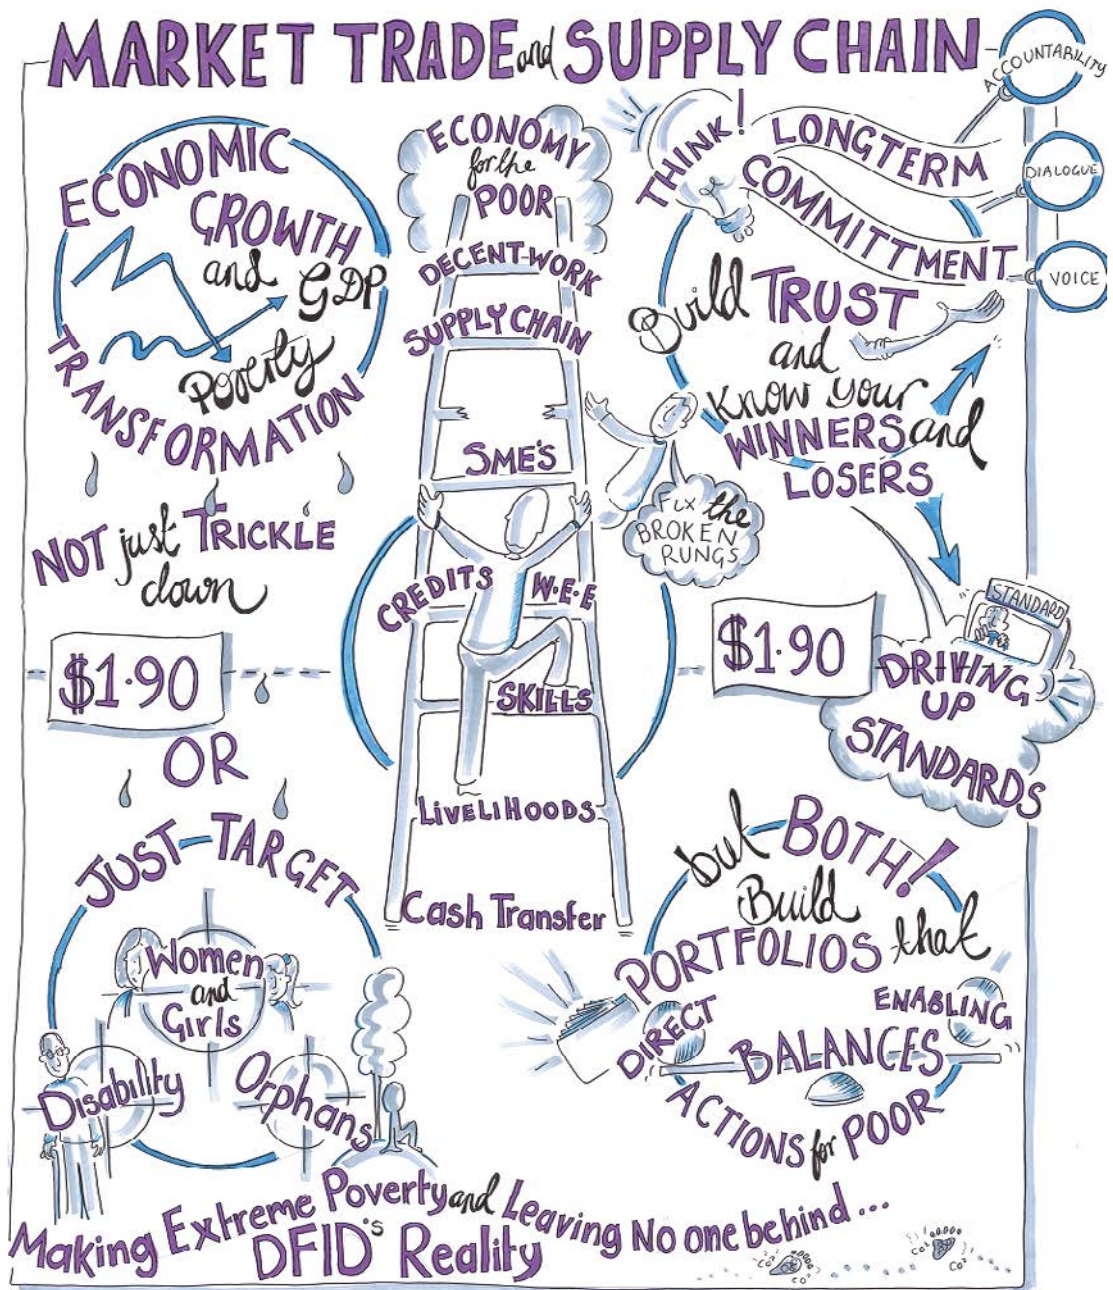 MARKET TRADE and SUPPLY CHAIN
ACCOUNTABILITY
DIALOGUE
VOICE
ECONOMIC
GROWTH
and GDP
Poverty
TRANSFORMATION
NOT just TRICKLE
down
$1.90
OR
JUST TARGET
Women
and
Girls
Disability
Orphans
ECONOMY
for the
POOR
DECENT-WORK
SUPPLY CHAIN
SME'S
CREDITS
W.E.E
SKILLS
LIVELIHOODS
Cash Transfer
FIX the
BROKEN
RUNGS
THINK!
LONGTERM
COMMITTMENT
Build TRUST
and
Know your
WINNERS and
LOSERS
STANDARD
$1.90
DRIVING
UP
STANDARDS
but BOTH!
Build
PORTFOLIOS that
DIRECT
ENABLING
BALANCES
ACTIONS for POOR
Making Extreme Poverty and Leaving No one behind...
DFID's Reality
CO²
CO²
CO²
CO²